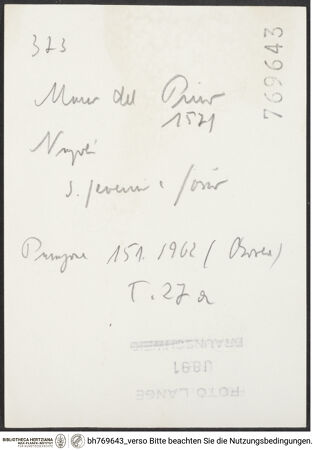 323
769643
Marco del Pino
1571
Napoli
S. Severino e Sosio
Paragone 151. 1962 (Bo
T. 27a
BRAUNSCHWEIG
1891
FOTO LANGE
BIBLIOTHECA HERTZIANA
MAX-PLANCK-INSTITUT
FÜR KUNSTGESCHICHTE
bh769643_verso Bitte beachten Sie die Nutzungsbedingungen.